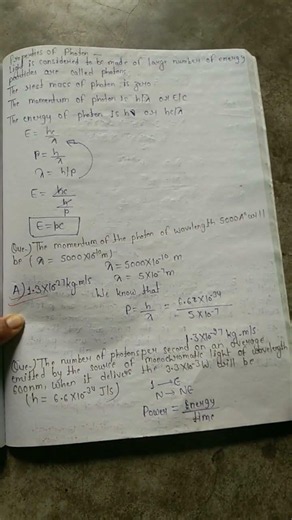 Properties of Photon -
Light is considered to be made of large number of energy
particles are called photons
The rest mass of photon is zero.
The momentum of photon is h/λ or E/C
The energy of photon is hν or hc/λ
E = hc/λ
P = h/λ
λ = h/p
E = hc/(h/p)
E = pc
Que.) The momentum of the photon of wavelength 5000A° will
be (λ = 5000×10⁻¹⁰m)
λ = 5000×10⁻¹⁰ m
λ = 5×10⁻⁷m
A) 1.3×10⁻²⁷kg.m/s
We know that
P = h/λ = 6.62×10⁻³⁴/5×10⁻⁷
1.3×10⁻²⁷kg.m/s
Que.) The number of photons per second on an average
emitted by the source of monochromatic light of wavelength
600nm, when it delivers the 3.3×10⁻³W will be
(h = 6.6×10⁻³⁴ J/s)
1 → E
N → NE
Power = Energy/time